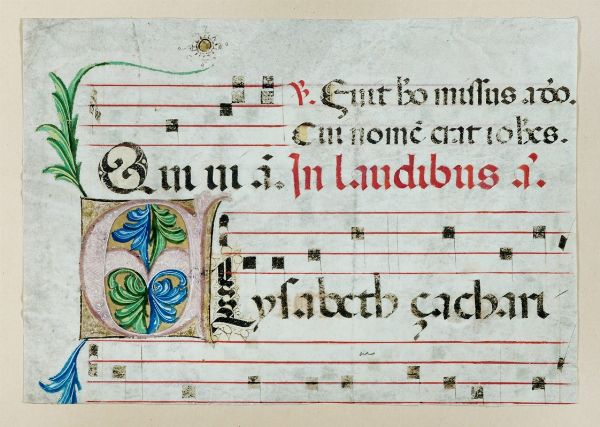 ℣. Fuit ho missus a do.
Cui nomē erat iohes.
ā. In laudibus ā.
Elysabeth çachari